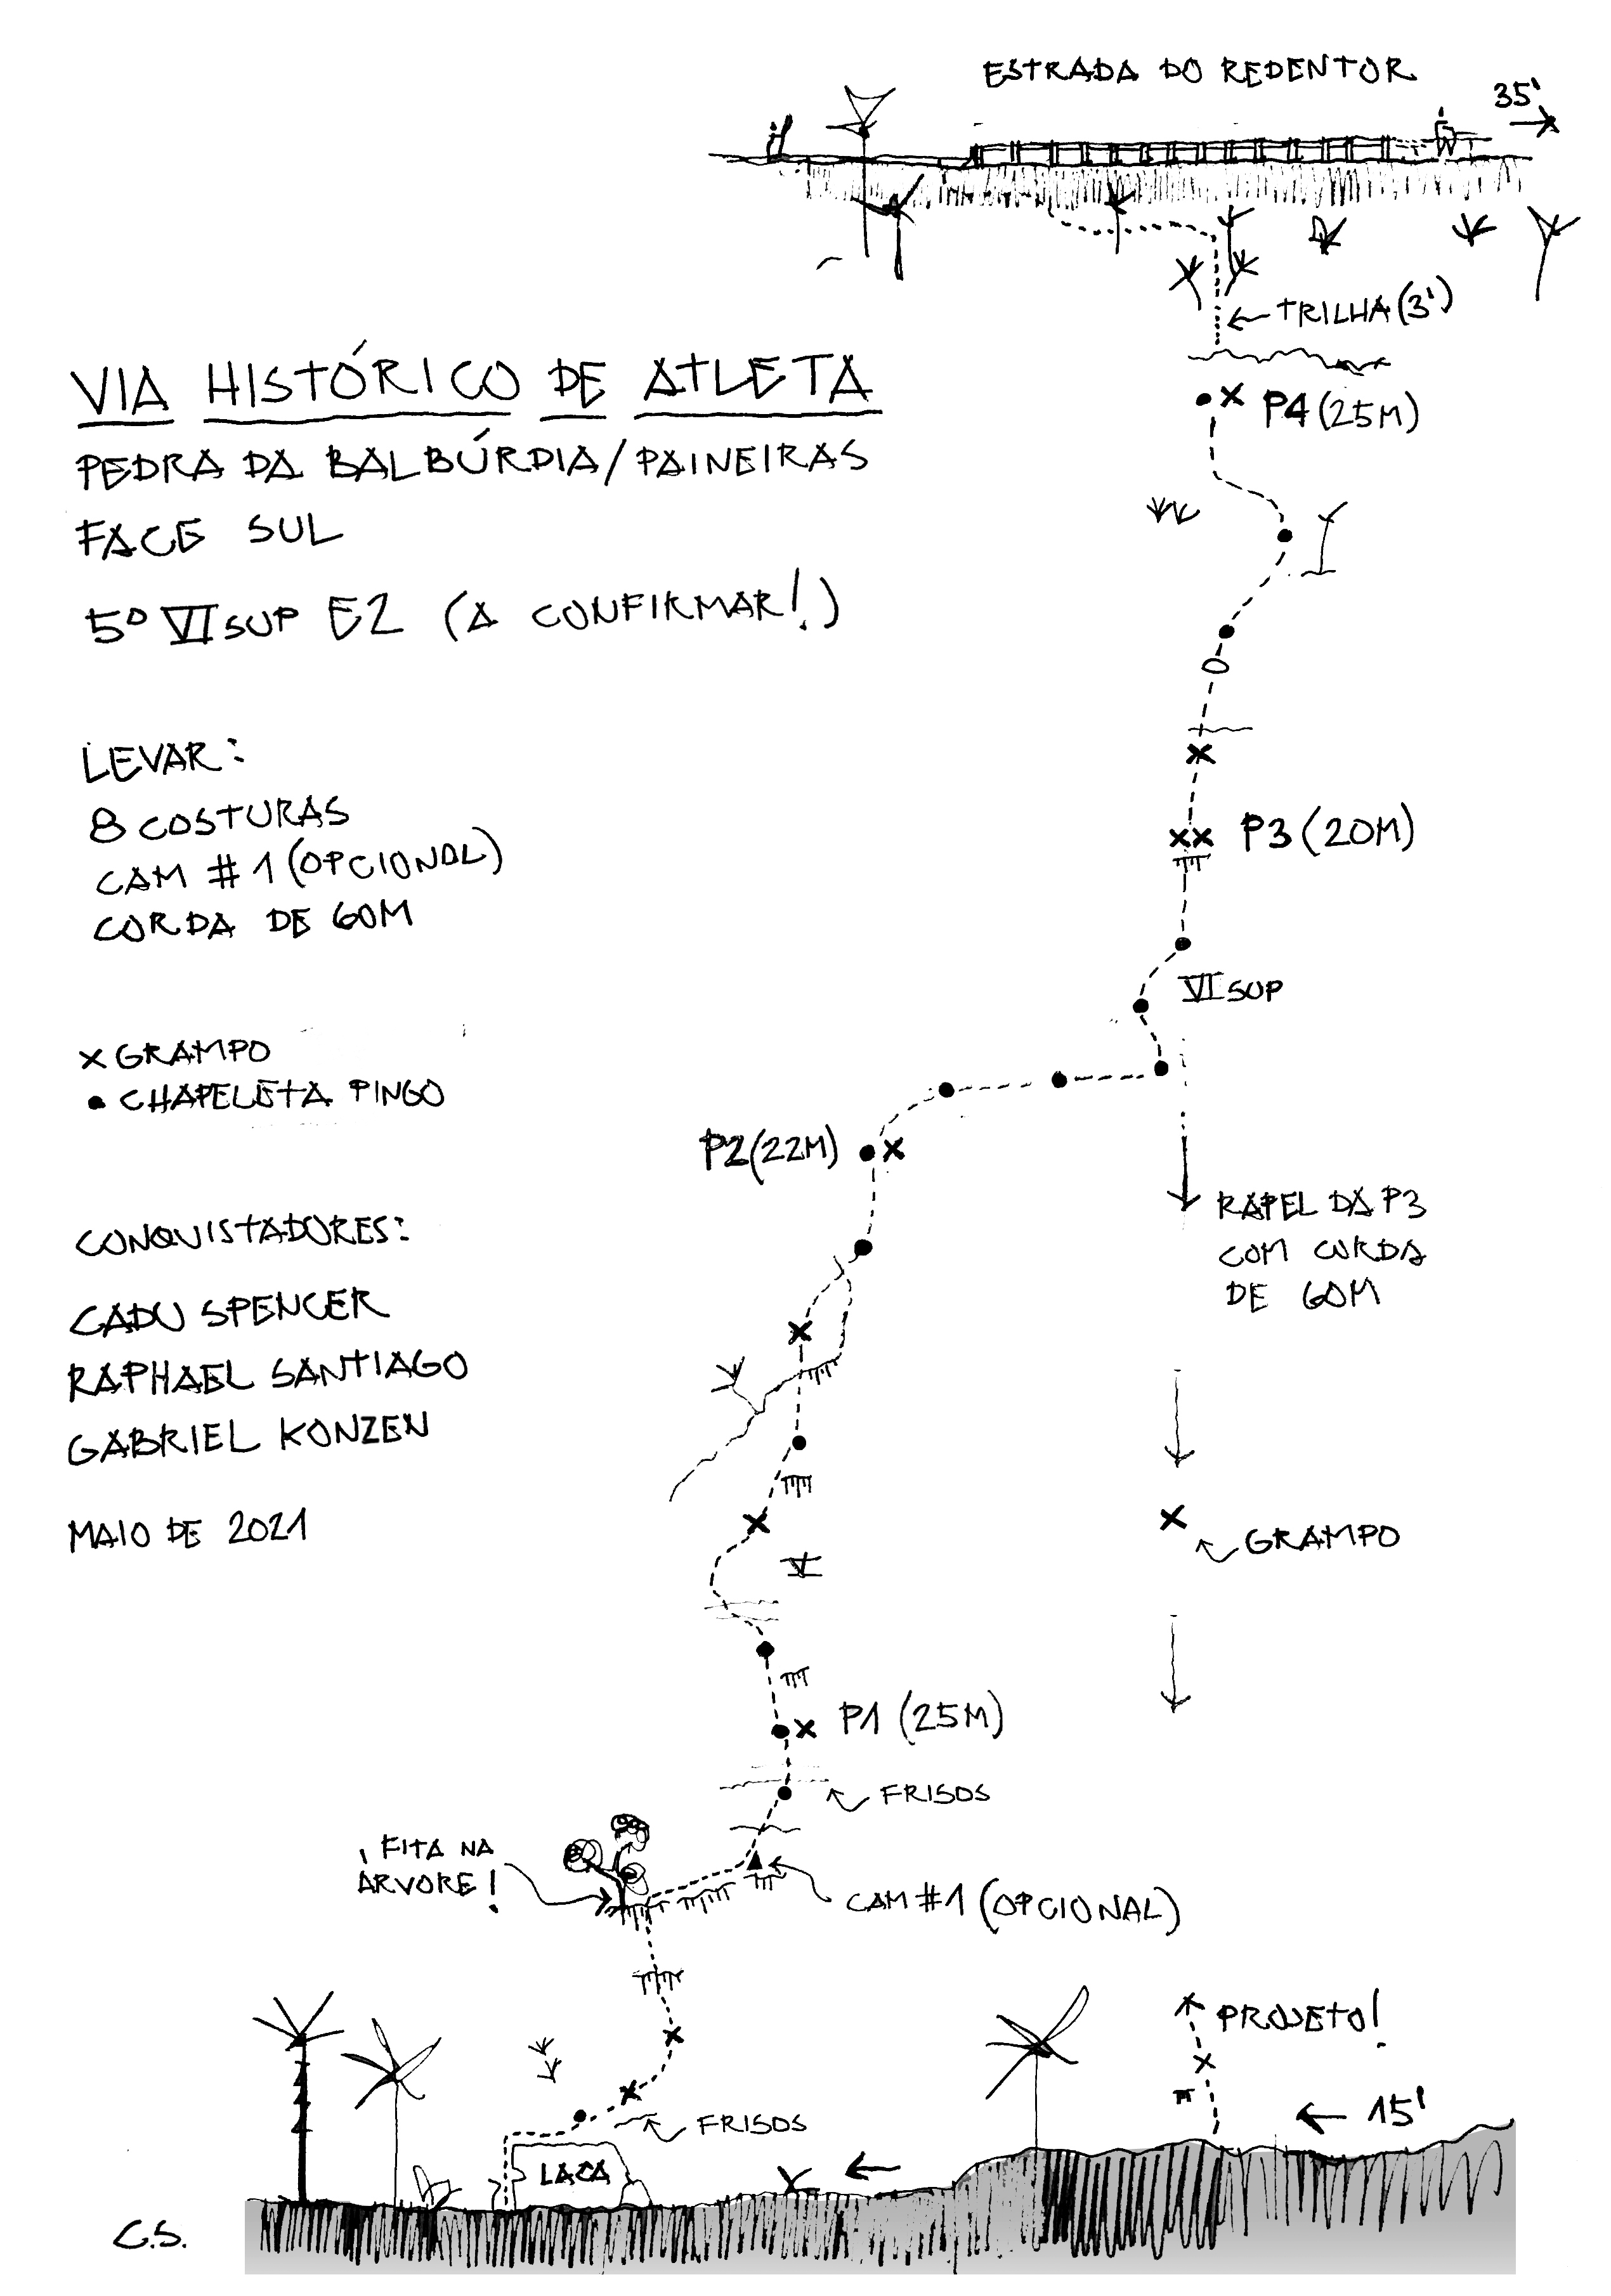 ESTRADA DO REDENTOR
35'
TRILHA (3')
VIA HISTÓRICO DE ATLETA
PEDRA DA BALBÚRDIA/PAINEIRAS
FACE SUL
5º VI SUP E2 (A CONFIRMAR!)
P4 (25M)
LEVAR:
8 COSTURAS
CAM #1 (OPCIONAL)
CORDA DE 60M
P3 (20M)
VI SUP
X GRAMPO
● CHAPELETA PINGO
P2 (22M)
RAPEL DA P3
COM CORDA
DE 60M
CONQUISTADORES:
CADU SPENCER
RAPHAEL SANTIAGO
GABRIEL KONZEN
MAIO DE 2021
GRAMPO
V
P1 (25M)
FRISOS
¡ FITA NA
ÁRVORE!
CAM #1 (OPCIONAL)
PROJETO!
15'
FRISOS
LACA
C.S.